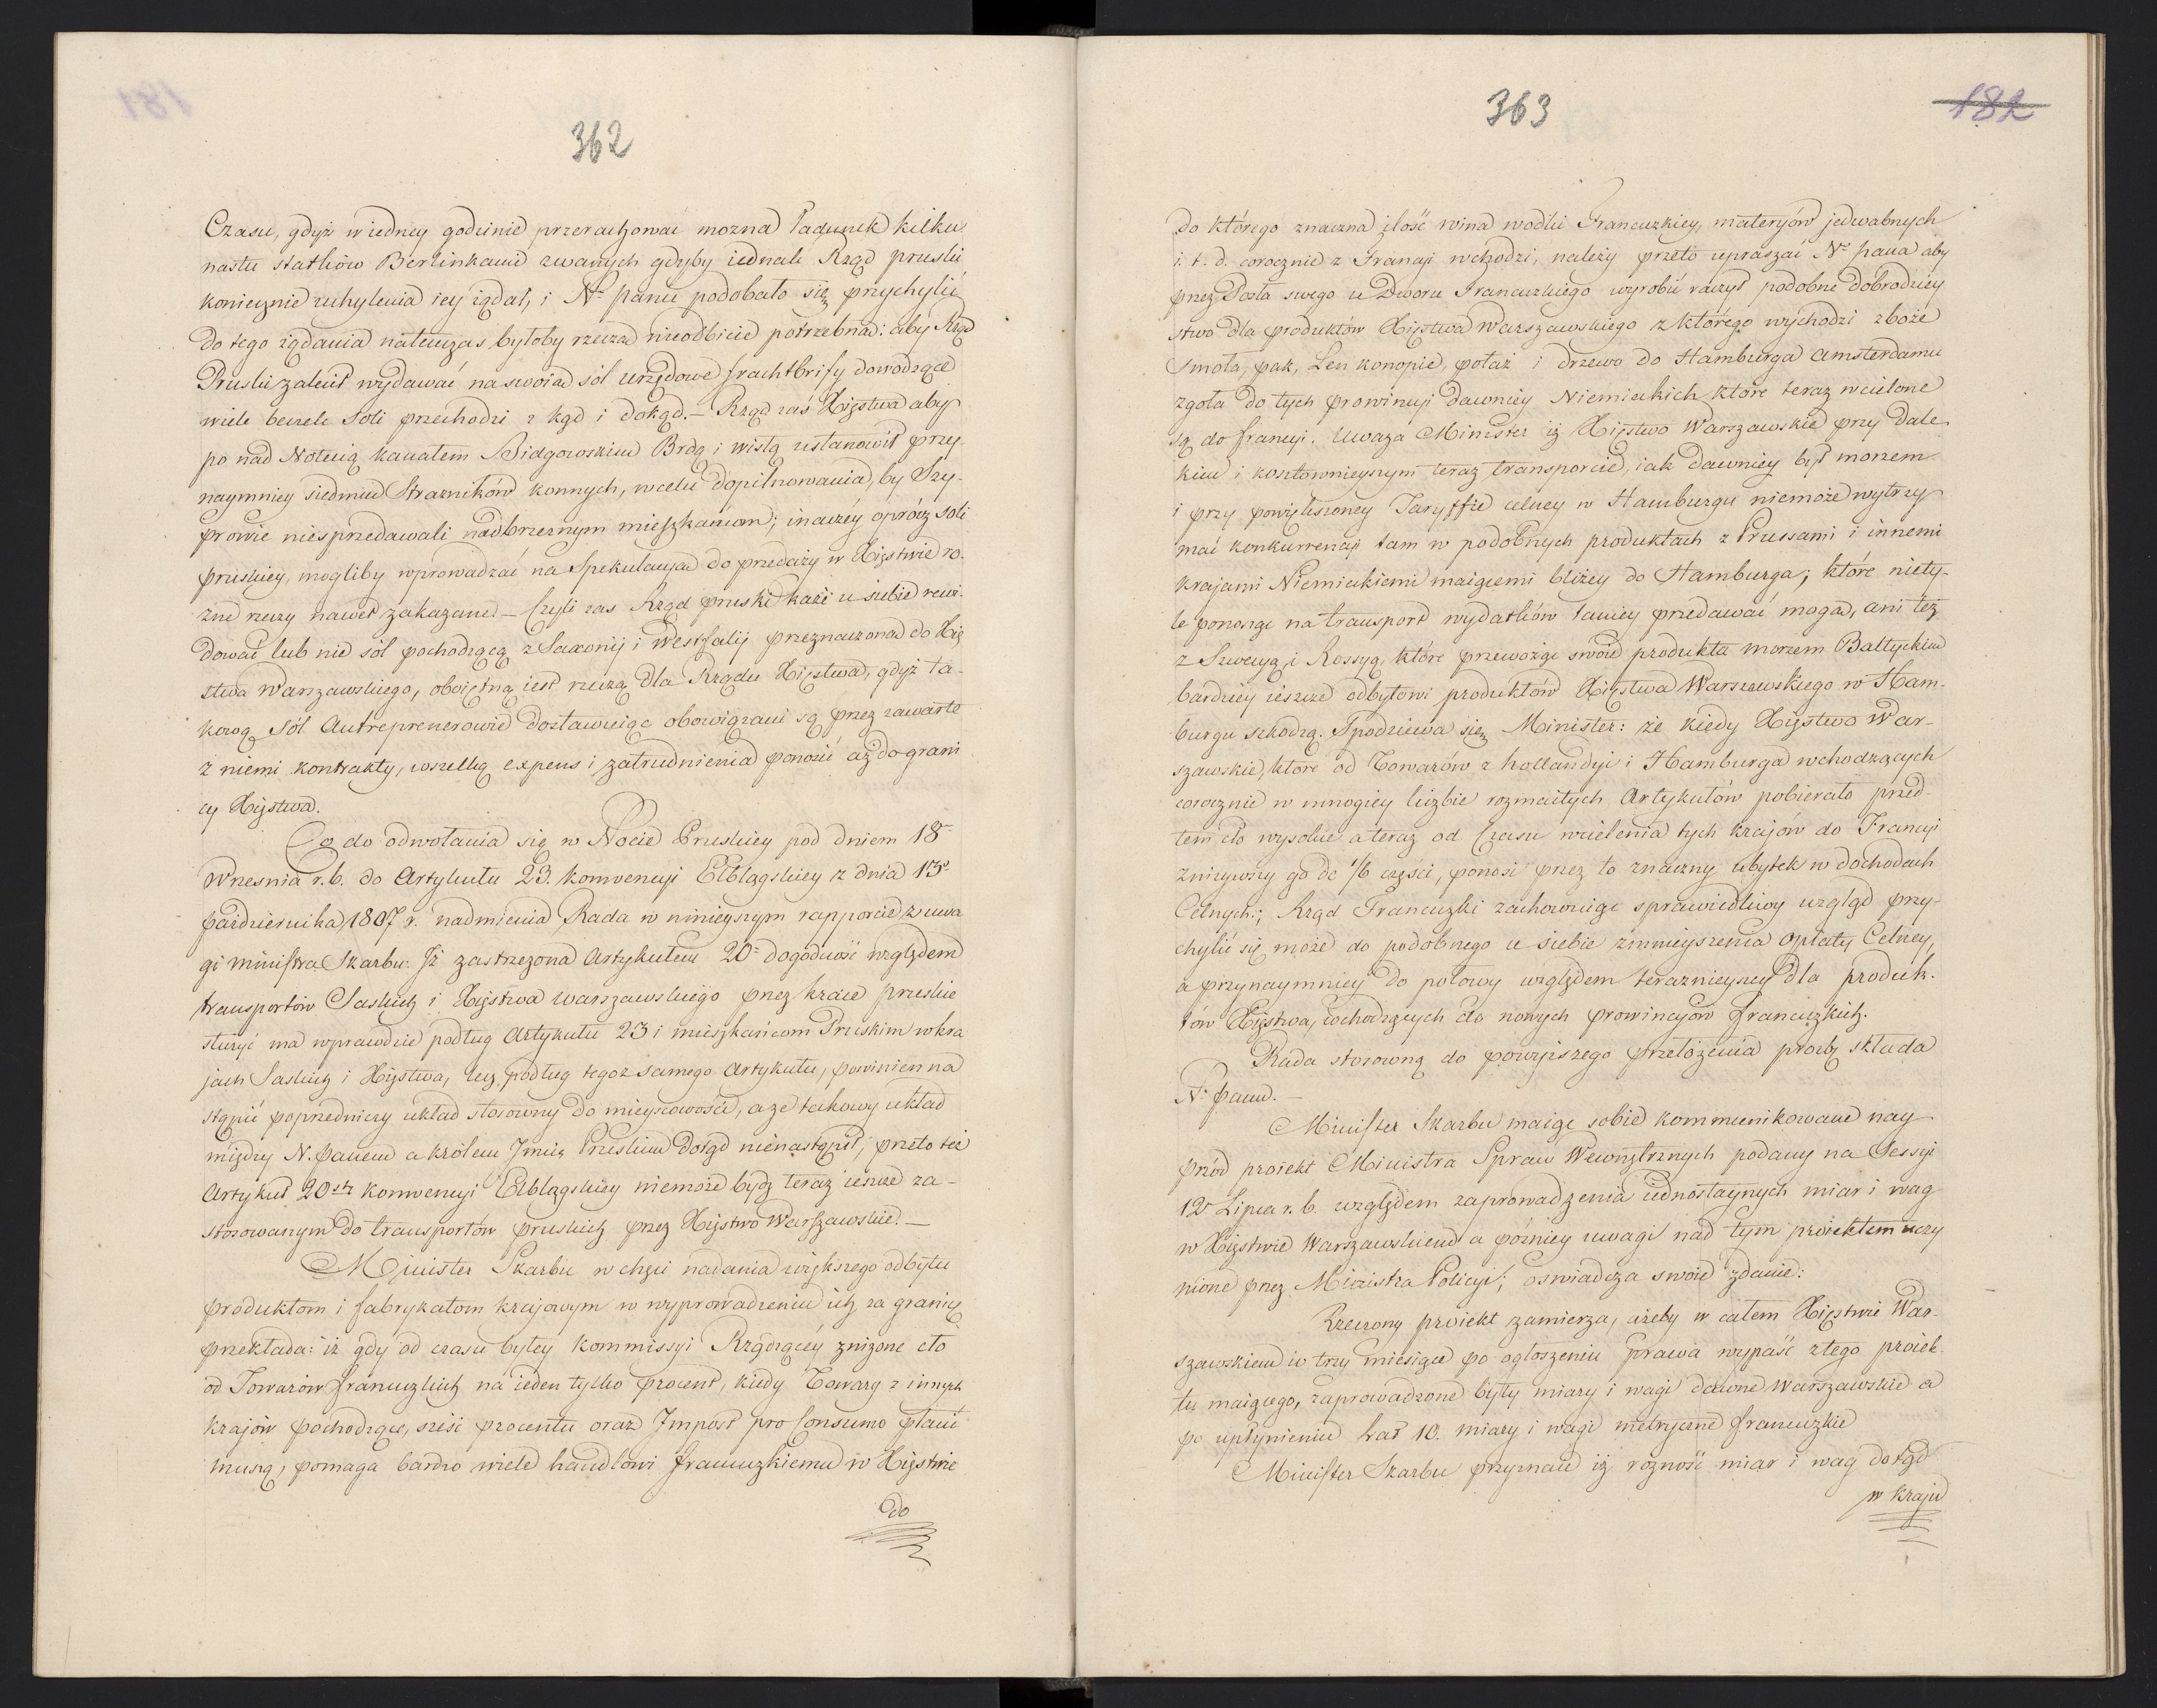 362
Czasu, gdyż w iedney godzinie przerachować można ładunek kilku
nastu statków Berlinkami zwanych gdyby iednak Rząd pruski
koniecznie uchylenia iey żądał, i Nº panu podobało się przychylić
do tego żądania natenczas byłoby rzeczą nieodbicie potrzebną: aby Rząd
Pruski zalecił wydawać na swoią sól urzędowe frachtbrify dowodzące
wiele beczek Soli przechodzi z kąd i dokąd. — Rząd zaś Xięstwa aby
po nad Notecią kanałem Bidgowskim Brdą i wisłą ustanowił przy
naymniey siedmiu Strażników konnych, w celu dopilnowania, by Szy-
prowie niesprzedawali nadbrzeżnym mieszkańcom; inaczéy oprócz soli
pruskiey, mogliby wprowadzać na Spekulacyą do przedaży w Xięstwie ró-
żne rzeczy nawet zakazane. — Czyli zaś Rząd pruski każe u siebie rewi-
dować lub nie sól pochodzącą z Saxonij i Westfalij przeznaczoną do Xię
stwa Warszawskiego, oboiętną iest rzeczą dla Rządu Xięstwa, gdyż ta-
kową Sól Antreprenerowie dostawuiąc obowiązani są przez zawarte
z niemi kontrakty, wszelką expens i zatrudnienia ponosić aż do grani
cy Xięstwa.
Co do odwołania się w Nocie Pruskiey pod dniem 18º
Wrzesnia r. b. do Artykułu 23. konwencyi Elblągskiey z dnia 13º
października 1807 r. nadmienia Rada w ninieyszym rapporcie, z uwa
gi ministra Skarbu: Iż zastrzeżona Artykułem 20º dogodność względem
transportów Saskich i Xięstwa warszawskiego przez kraie pruskie
służyć ma wprawdzie podług Artykułu 23 i mieszkańcom Pruskim w kra
jach Saskich i Xięstwa, lecz podług tegoż samego Artykułu, powinien na
stąpić poprzedniczy układ stosowny do mieyscowości, a że takowy układ
między N. panem a królem Jmcią Pruskim dotąd nienastąpił, przeto też
Artykuł 20sty konwencyi Elblągskiey niemoże bydź teraz ieszcze za-
stosowanym do transportów pruskich przez Xięstwo Warszawskie. —
Minister Skarbu w chęci nadania większego odbytu
produktom i fabrykatom krajowym w wyprowadzeniu ich za granicę
przekłada: iż gdy od czasu byłey Kommissyi Rządzącéy zniżone cło
od Towarów francuzkich na ieden tylko procent, kiedy Towary z innych
krajów pochodzące, sześć procentu oraz Impost pro Consumo płacić
muszą, pomaga bardzo wiele handlowi francuzkiemu w Xięstwie
do
363
182
do którego znaczna ilość wina wódki Francuzkiey, materyów jedwabnych
i. t. d. corocznie z Francyi wchodzi, należy przeto upraszać Nº pana aby
przez Posła swego u Dworu Francuzkiego wyrobić raczył podobne dobrodziey
stwo dla produktów Xięstwa Warszawskiego z którego wychodzi zboże
smoła, pak, Len konopie, potaż i drzewo do Hamburga Amsterdamu
zgoła do tych prowincyi dawniey Niemieckich które teraz wcielone
są do francyi. Uważa Minister iż Xięstwo Warszawskie przy dale
kim i kosztownieyszym teraz transporcie, iak dawniey był morzem
i przy powiększoney Taryffie celney w Hamburgu niemoże wytrzy
mać konkurrencyi tam w podobnych produktach z Prussami i innemi
krajami Niemieckiemi maiącemi bliżey do Hamburga; które niety-
le ponosząc na transport wydatków taniey przedawać mogą, ani też
z Szwecyą i Rossyą, które przewożąc swoie produkta morzem Baltyckim
bardziey ieszcze odbytowi produktów Xięstwa Warszawskiego w Ham-
burgu szkodzą. Spodziewa się Minister: że kiedy Xięstwo War-
szawskie, które od Towarów z hollandyi i Hamburga wchodzących
corocznie w mnogiey liczbie rozmaitych Artykułów pobierało przed-
tem cło wysokie a teraz od Czasu wcielenia tych krajów do Francyi
zniżywszy go do 1/6 części, ponosi przez to znaczny ubytek w dochodach
Celnych; Rząd Francuzki zachowuiąc sprawiedliwy wzgląd przy-
chylić się może do podobnego u siebie zmnieyszenia opłaty Celney,
a przynaymniey do połowy względem teraznieyszey dla produk-
tów Xięstwa, wchodzących do nowych prowincyów francuzkich.
Rada stosowną do powyższego przełożenia prozbę składa
N. panu. —
Minister Skarbu maiąc sobie kommunikowane nay
przód proiekt Ministra Spraw Wewnętrznych podany na Sessyi
12º Lipca r. b. względem zaprowadzenia iednostaynych miar i wag
w Xięstwie Warszawskiem a późniey uwagi nad tym proiektem uczy
nione przez Ministra Policyi; oswiadcza swoie zdanie:
Rzeczony proiekt zamierza, ażeby w całem Xięstwie War-
szawskiem w trzy miesiące po ogłoszeniu prawa wypaść z tego proiek-
tu maiącego, zaprowadzone były miary i wagi dawne Warszawskie a
po upłynieniu lat 10. miary i wagi metryczne francuzkie
Minister Skarbu przyznaie iż rozność miar i wag dotąd
w kraju